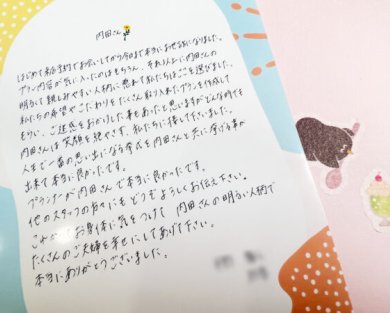 内田さん
はじめて来店予約でお会いしてから今日まで本当にお世話になりました。
プラン内容が気に入ったのはもちろん、それ以上に内田さんの
明るくて親しみやすい人柄に惹れて私たちはここを選びました。
私たちの希望やこだわりをたくさん取り入れたプランを作成して
もらい、ご迷惑をおかけした事もあったと思いますがどんな時でも
内田さんは笑顔を絶やさず、私たちに接して下さいました。
人生で一番の思い出になる挙式を内田さんと共に挙げる事が
出来て本当に良かったです。
プランナーが内田さんで本当に良かったです。
他のスタッフの方々にもどうぞよろしくお伝え下さい。
お身体に気をつけて 内田さんの明るい人柄で
たくさんのご夫婦を幸せにしてあげて下さい。
本当にありがとうございました。